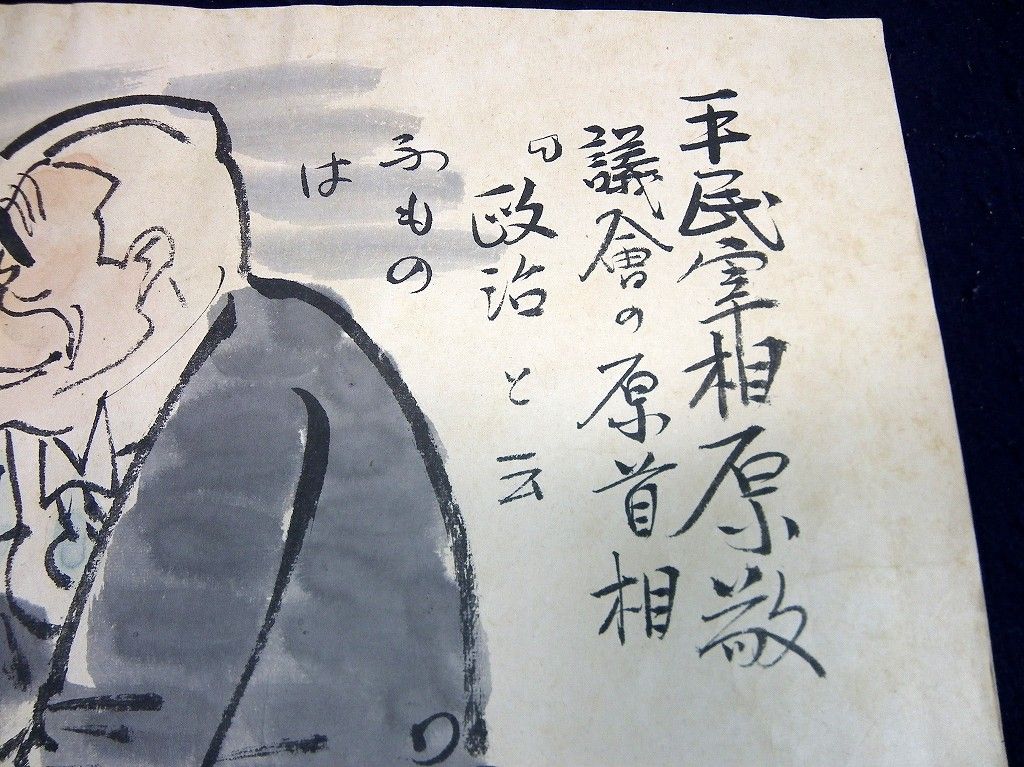 平民宰相原敬
議會の原首相
『政治と云
ふもの
は